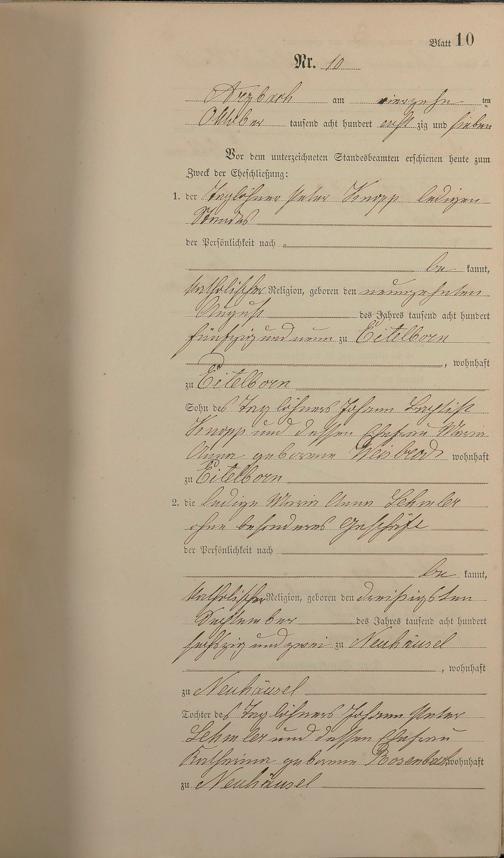 Blatt 10
Nr. 10
Arzbach am vierzehn ten
Oktober tausend acht hundert achtzig und sieben
Vor dem unterzeichneten Standesbeamten erschienen heute zum
Zweck der Eheschließung:
1. der Taglöhner Peter Knopp ledigen
Standes
der Persönlichkeit nach
be kannt,
katholischer Religion, geboren den neunzehnten
August des Jahres tausend acht hundert
fünfzig und neun zu Eitelborn
, wohnhaft
zu Eitelborn
Sohn des Taglöhners Johann Baptist
Knopp und dessen Ehefrau Maria
Anna geborene Weisbrod wohnhaft
zu Eitelborn
2. die ledige Maria Anna Lehmler
ohne besonderes Geschäft
der Persönlichkeit nach
be kannt,
katholischer Religion, geboren den dreißigsten
September des Jahres tausend acht hundert
sechszig und zwei zu Neuhäusel
, wohnhaft
zu Neuhäusel
Tochter des Taglöhners Johann Peter
Lehmler und dessen Ehefrau
Katharina geborene Rosenbach wohnhaft
zu Neuhäusel